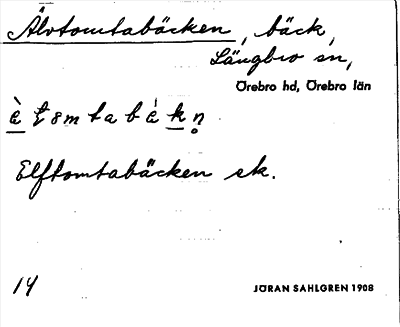 Älvtomtabäcken, bäck,
Längbro sn,
Örebro hd, Örebro län
Elftomtabäcken sk.
14 JÖRAN SAHLGREN 1908